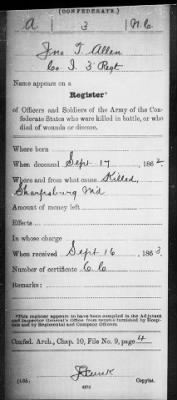 (CONFEDERATE.)
A 3 N.C.
Jno. T. Allen
Co. I. 3' Regt
Name appears on a
Register*
of Officers and Soldiers of the Army of the Con-
federate States who were killed in battle, or who
died of wounds or disease.
Where born
When deceased Sept. 17, 1862
Where and from what cause Killed,
Sharpsburg Md
Amount of money left
Effects
In whose charge
When received Sept 16, 1863.
Number of certificate
Remarks:
*This register appears to have been compiled in the Adjutant
and Inspector General's Office from records furnished by Hospi-
tals and by Regimental and Company Officers.
Confed. Arch., Chap. 10, File No. 9, page 4
Copyist.